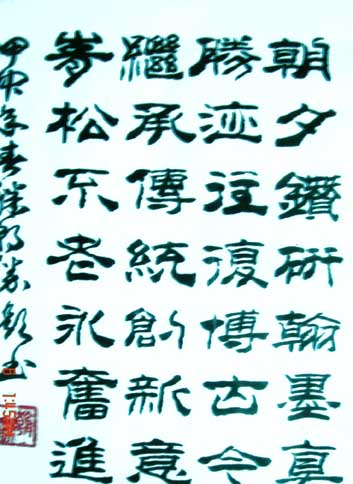 朝夕鑽研翰墨真
勝迹往復博古今
繼承傳統創新意
青松不老永奮進
甲申年春